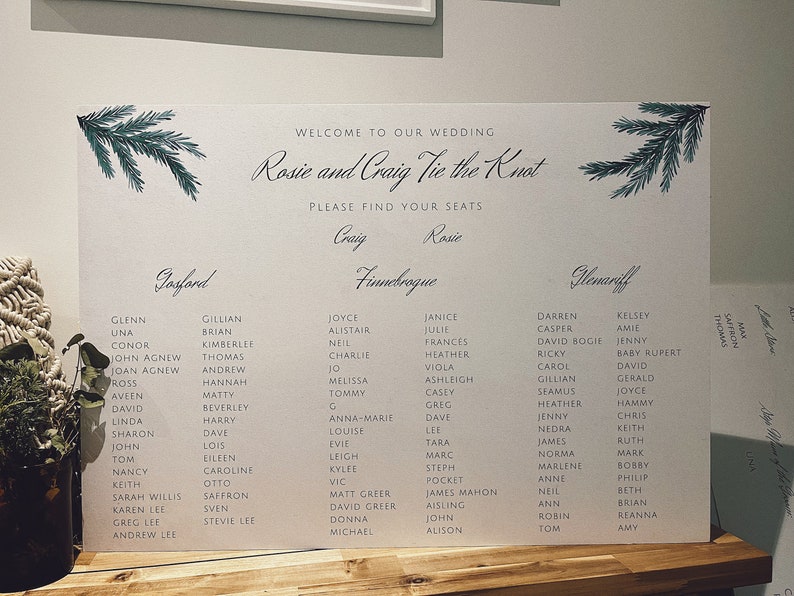 Welcome to our wedding
Rosie and Craig Tie the Knot
Please find your seats
Craig Rosie
Gosford
Glenn Gillian
Una Brian
Conor Kimberlee
John Agnew Thomas
Joan Agnew Andrew
Ross Hannah
Aveen Matty
David Beverley
Linda Harry
Sharon Dave
John Lois
Tom Eileen
Nancy Caroline
Keith Otto
Sarah Willis Saffron
Karen Lee Sven
Greg Lee Stevie Lee
Andrew Lee
Finnebrogue
Joyce Janice
Alistair Julie
Neil Frances
Charlie Heather
Jo Viola
Melissa Ashleigh
Tommy Casey
G Greg
Anna-Marie Dave
Louise Lee
Evie Tara
Leigh Marc
Kylee Steph
Vic Pocket
Matt Greer James Mahon
David Greer Aisling
Donna John
Michael Alison
Glenariff
Darren Kelsey
Casper Amie
David Bogie Jenny
Ricky Baby Rupert
Carol David
Gillian Gerald
Seamus Joyce
Heather Hammy
Jenny Chris
Nedra Keith
James Ruth
Norma Mark
Marlene Bobby
Anne Philip
Neil Beth
Ann Brian
Robin Reanna
Tom Amy
Max
Saffron
Thomas
Una